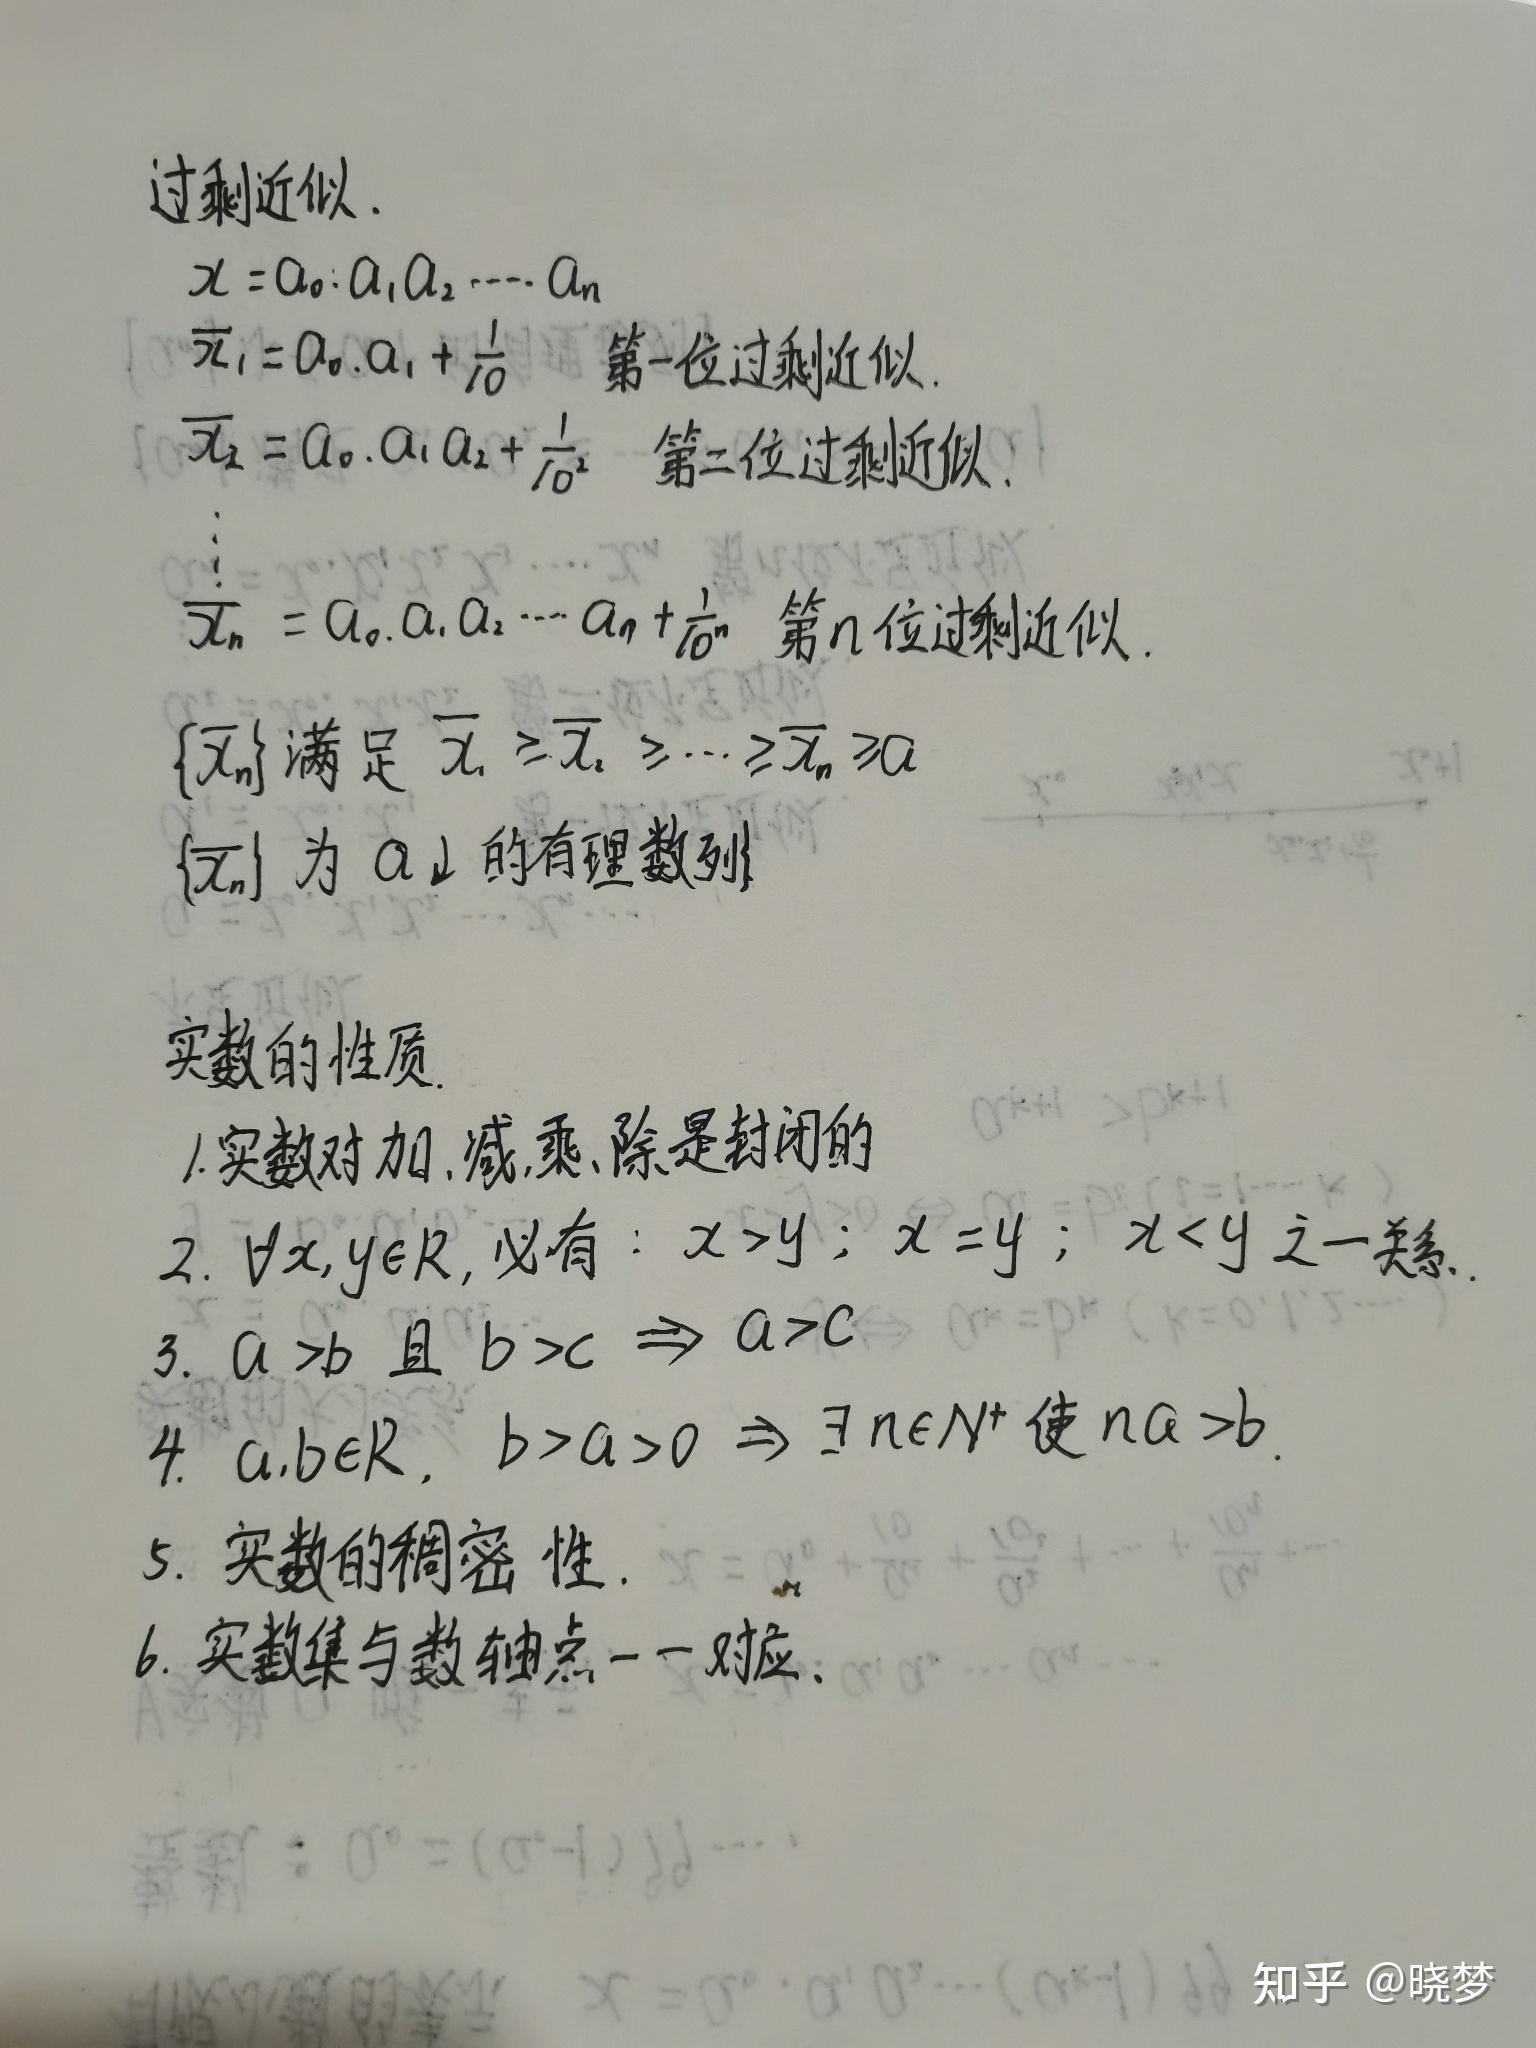 过剩近似.
x = a₀.a₁a₂……aₙ
x̅₁ = a₀.a₁ + 1/10 第一位过剩近似.
x̅₂ = a₀.a₁a₂ + 1/10² 第二位过剩近似.
⋮
x̅ₙ = a₀.a₁a₂…aₙ + 1/10ⁿ 第n位过剩近似.
{x̅ₙ} 满足 x̅₁ ≥ x̅₂ ≥ … ≥ x̅ₙ ≥ a
{x̅ₙ} 为 a↓ 的有理数列
实数的性质.
1. 实数对加、减、乘、除是封闭的
2. ∀x,y∈R, 必有: x>y; x=y; x<y 之一关系.
3. a>b 且 b>c ⇒ a>c
4. a,b∈R, b>a>0 ⇒ ∃n∈N⁺ 使 na>b.
5. 实数的稠密性.
6. 实数集与数轴点一一对应.
知乎 @晓梦